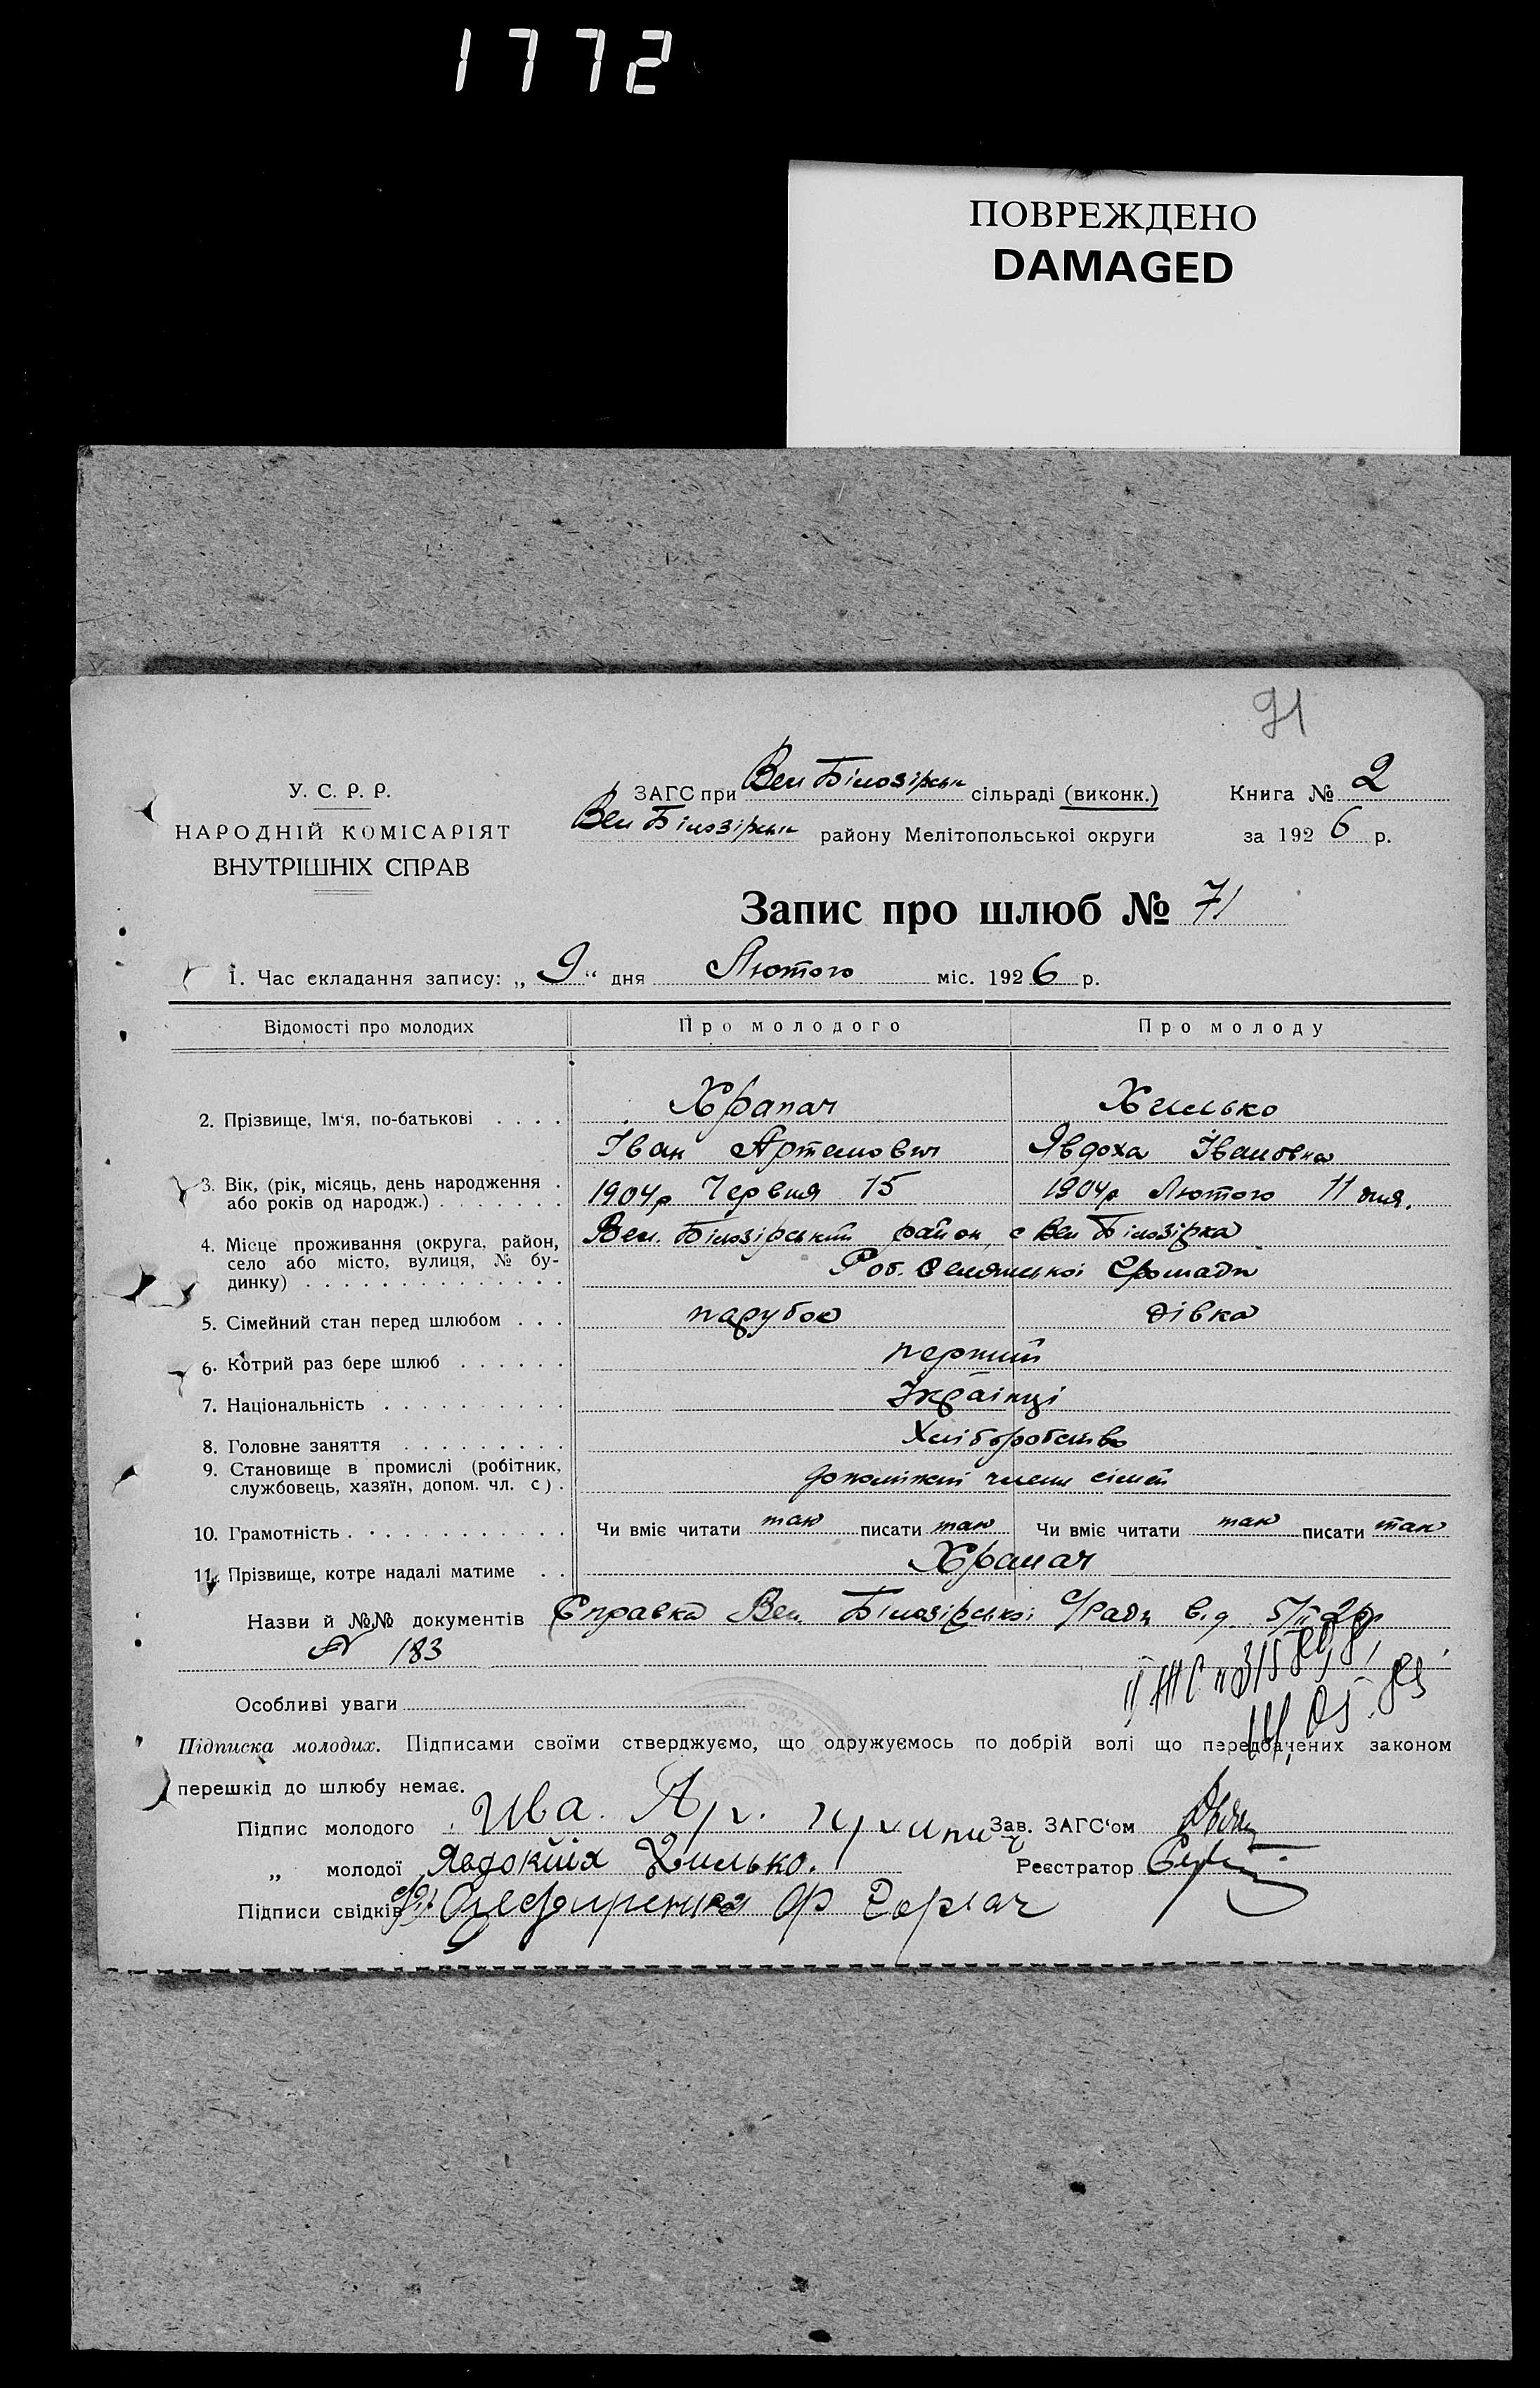 1772
ПОВРЕЖДЕНО
DAMAGED
91
У. С. Р. Р.
НАРОДНІЙ КОМІСАРІЯТ
ВНУТРІШНІХ СПРАВ
ЗАГС при Вел Білозірськ сільраді (виконк.)
Вел Білозірськ району Мелітопольськоі округи
Книга № 2
за 1926 р.
Запис про шлюб № 71
1. Час складання запису: „ 9 “ дня Лютого міс. 1926 р.
Відомості про молодих Про молодого Про молоду
2. Прізвище, Ім‘я, по-батькові . . . . Храпач Хилько
Іван Артемович Явдоха Івановна
3. Вік, (рік, місяць, день народження . або років од народж.) . . . . . . . 1904р Червня 15 1904р Лютого 11 дня.
4. Місце проживання (округа, район, село або місто, вулиця, № будинку) . . . . . . . . . . . . . . Вел. Білозірський район, с Вел Білозірка
Роб. Селянської Громади
5. Сімейний стан перед шлюбом . . . парубок дівка
6. Котрий раз бере шлюб . . . . . . перший
7. Національність . . . . . . . . . . Українці
8. Головне заняття . . . . . . . . . Хліборобство
9. Становище в промислі (робітник, службовець, хазяїн, допом. чл. с) . допоміжні члени сімей
10. Грамотність . . . . . . . . . . . . Чи вміє читати так писати так Чи вміє читати так писати так
11. Прізвище, котре надалі матиме . . Храпач
Назви й №№ документів Справка Вел Білозірської С/Ради від 5/II 26р
№ 183
Особливі уваги
Підписка молодих. Підписами своїми стверджуємо, що одружуємось по добрій волі що передбачених законом
перешкід до шлюбу немає.
Підпис молодого Ива. Ар. Зав. ЗАГС‘ом
„ молодої Явдокія Хилько. Реєстратор
Підписи свідків